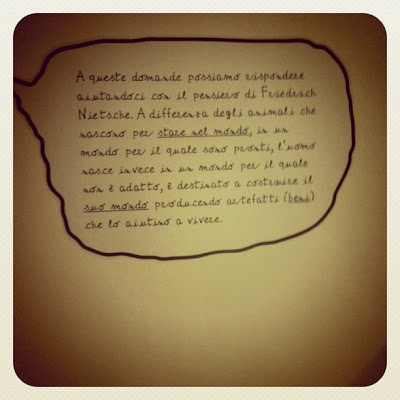 A queste domande possiamo rispondere
aiutandoci con il pensiero di Friedrich
Nietsche. A differenza degli animali che
nascono per stare nel mondo, in un
mondo per il quale sono pronti, l'uomo
nasce invece in un mondo per il quale
non è adatto, è destinato a costruire il
suo mondo producendo artefatti (beni)
che lo aiutino a vivere.